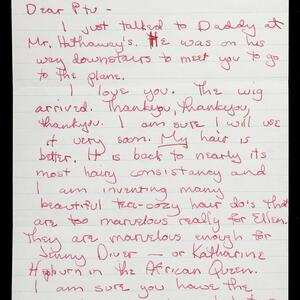 Dear Ptu -
I just talked to Daddy at
Mr. Hathaway's. He was on his
way downstairs to meet you to go
to the plane.
I love you. The wig
arrived. Thankyou, thankyou,
thankyou. I am sure I will use
it very soon. My hair is
better. It is back to nearly its
most hairy consistancy and
I am inventing many
beautiful tea-cozy hair do's that
are too marvelous really for Ellen.
They are marvelous enough for
Jenny Diver — or Katharine
Hepburn in the African Queen.
I am sure you have the